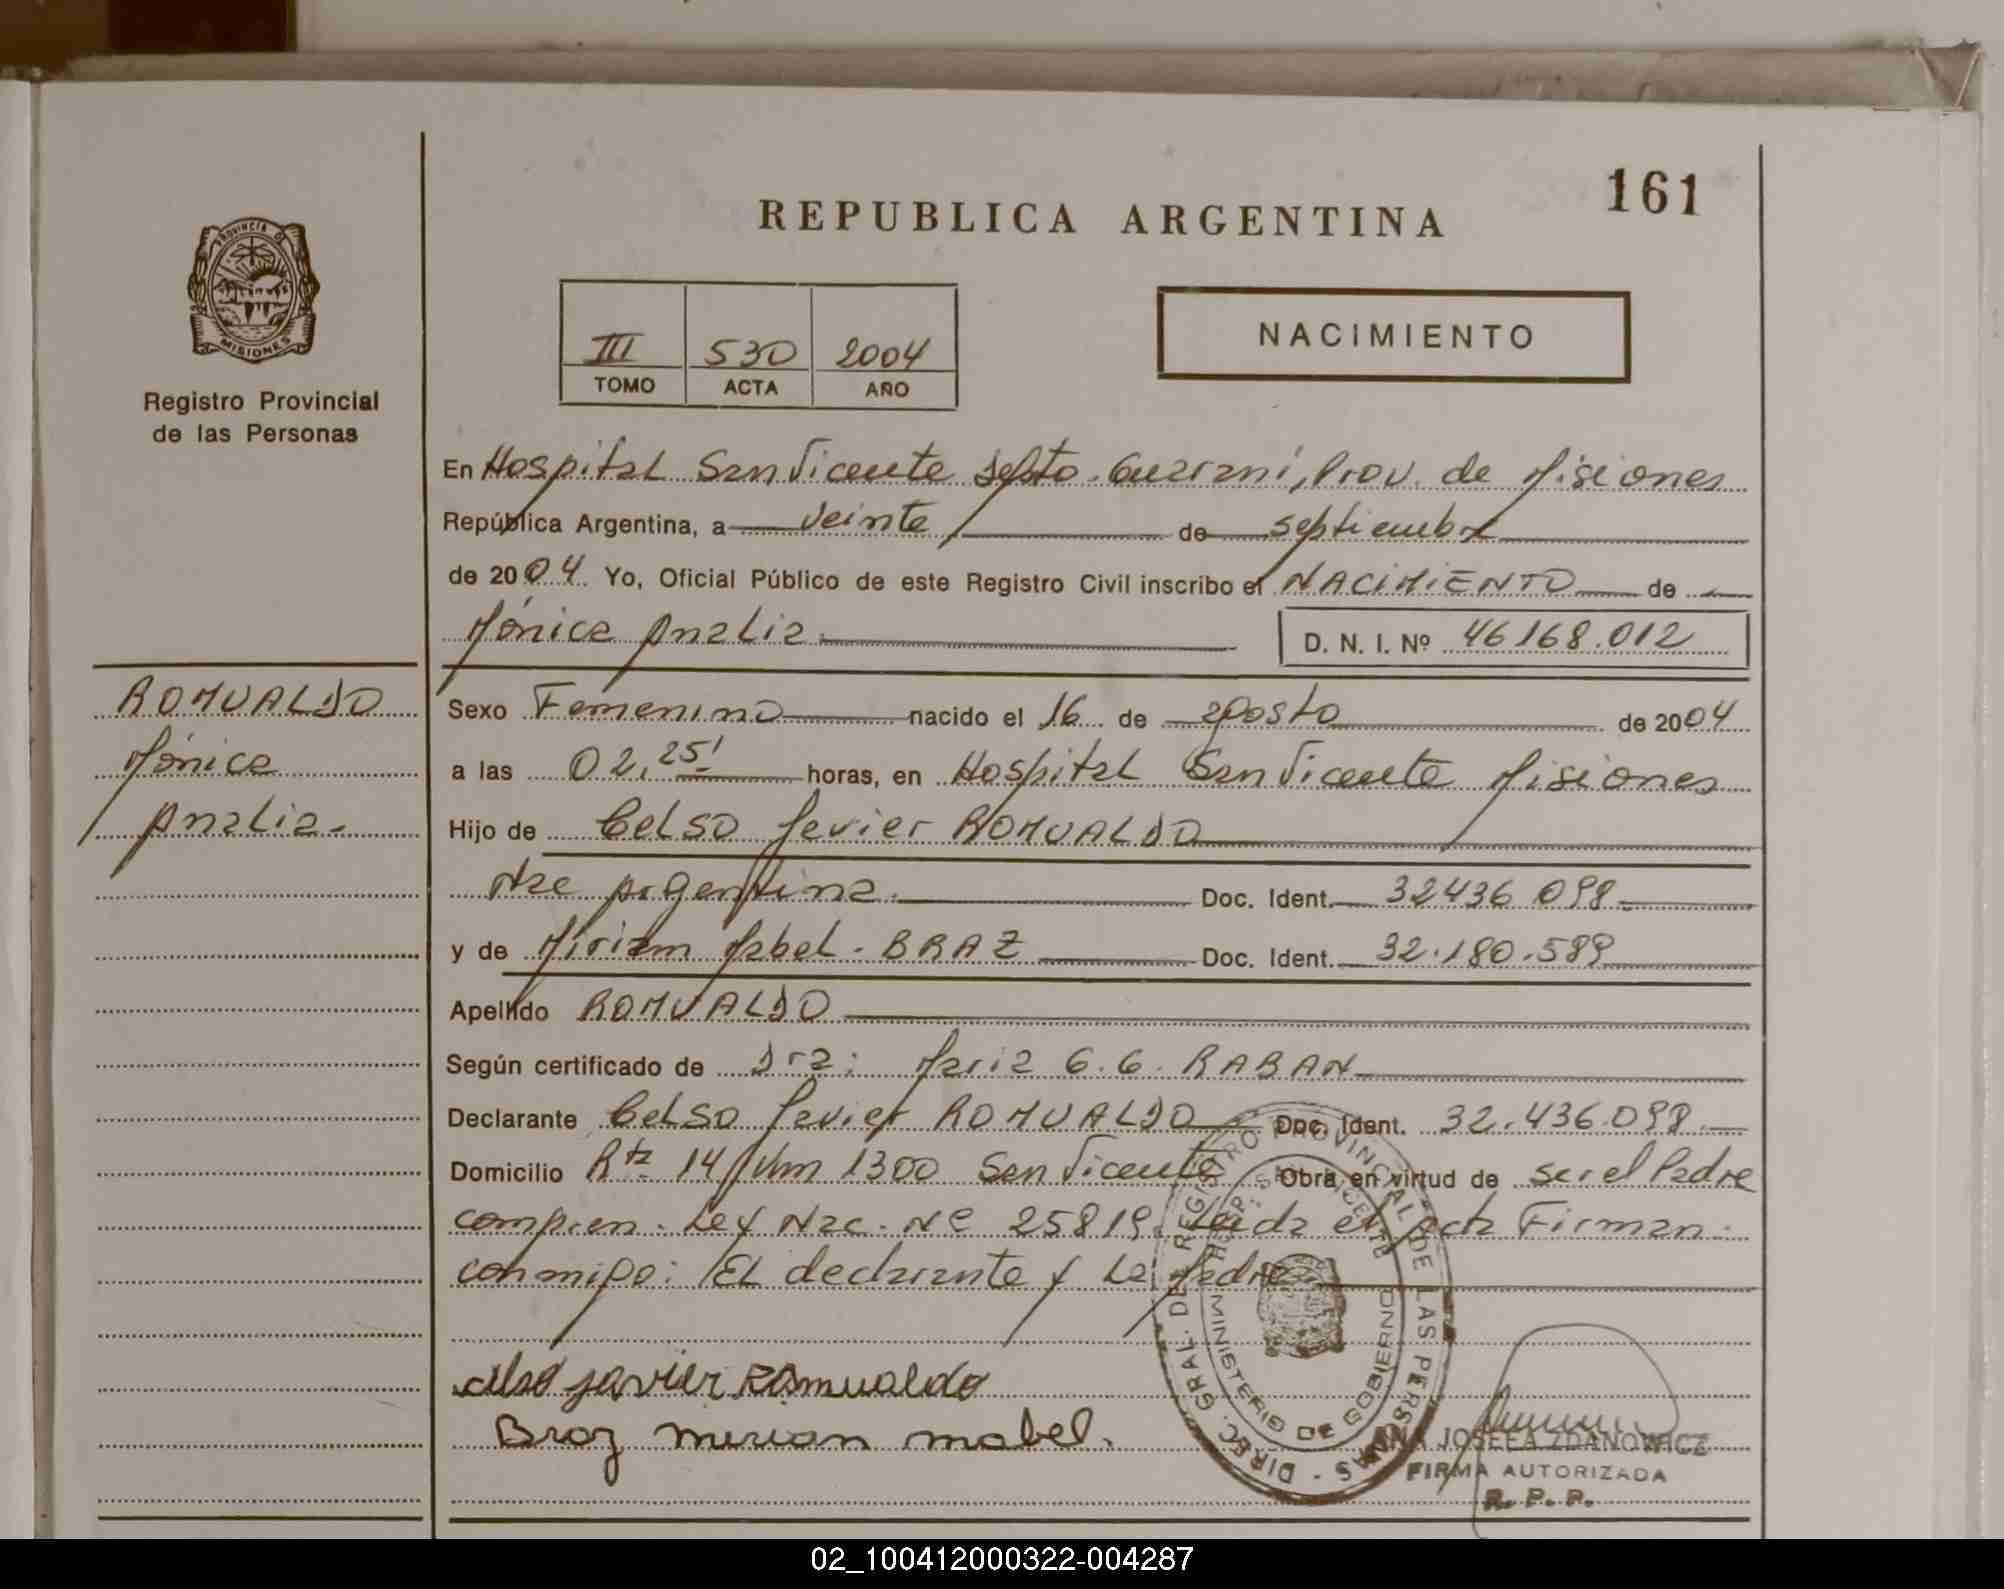 161
REPUBLICA ARGENTINA
PROVINCIA DE
MISIONES
Registro Provincial
de las Personas
III 530 2004
TOMO ACTA AÑO
NACIMIENTO
En Hospital San Vicente Depto. Guaraní, Prov. de Misiones
República Argentina, a veinte de septiembre
de 2004 Yo, Oficial Público de este Registro Civil inscribo el NACIMIENTO de
Mónica Analia. D. N. I. Nº 46168.012
ROMUALDO
Mónica
Analia.
Sexo Femenino nacido el 16 de agosto de 2004
a las 02,25' horas, en Hospital San Vicente Misiones
Hijo de Celso Javier ROMUALDO
Nac Argentina. Doc. Ident. 32436.098.
y de Miriam Mabel. BRAZ Doc. Ident. 32.180.589
Apellido ROMUALDO
Según certificado de Dra: Maria G.G. RABAN
Declarante Celso Javier ROMUALDO Doc. Ident. 32.436.098.
Domicilio Rta 14 Km 1300 San Vicente Obra en virtud de ser el Padre
compren. Ley Nac. Nº 25819. Leida el Acta Firman
conmigo: El declarante y La Madre
DIREC. GRAL. DEL REGISTRO PROVINCIAL DE LAS PERSONAS
HOSP. SAN VICENTE
MINISTERIO DE GOBIERNO
celso javier Romualdo
Braz Mirian mabel.
ANA JOSEFA ZDANOWICZ
FIRMA AUTORIZADA
R. P. P.
02_100412000322-004287